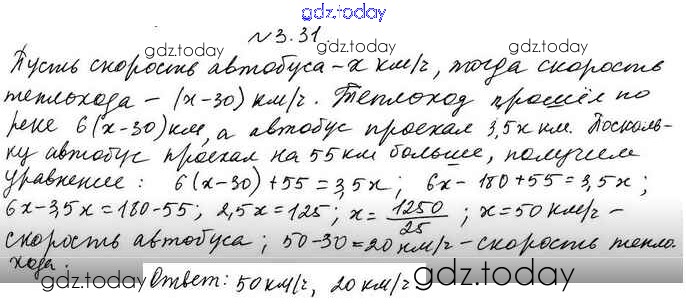 gdz.today
gdz.today №3.31. gdz.today
Пусть скорость автобуса - x км/ч, тогда скорость
теплохода - (x-30) км/ч. Теплоход прошёл по
реке 6(x-30) км, а автобус проехал 3,5x км. Посколь-
ку автобус проехал на 55 км больше, получим
уравнение: 6(x-30)+55=3,5x; 6x-180+55=3,5x;
6x-3,5x=180-55; 2,5x=125; x=1250/25; x=50 км/ч -
скорость автобуса; 50-30=20 км/ч - скорость тепло-
хода.
Ответ: 50 км/ч, 20 км/ч
gdz.today
gdz.today
gdz.today
gdz.today